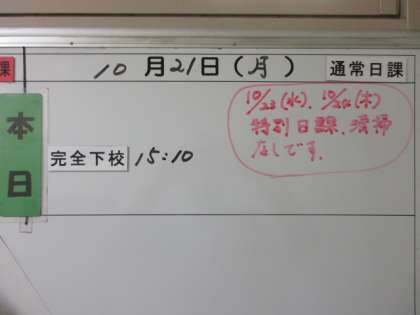 課 10月21日(月) 通常日課
本日
完全下校 15:10
10/23(水)、10/24(木)
特別日課、清掃
なしです。